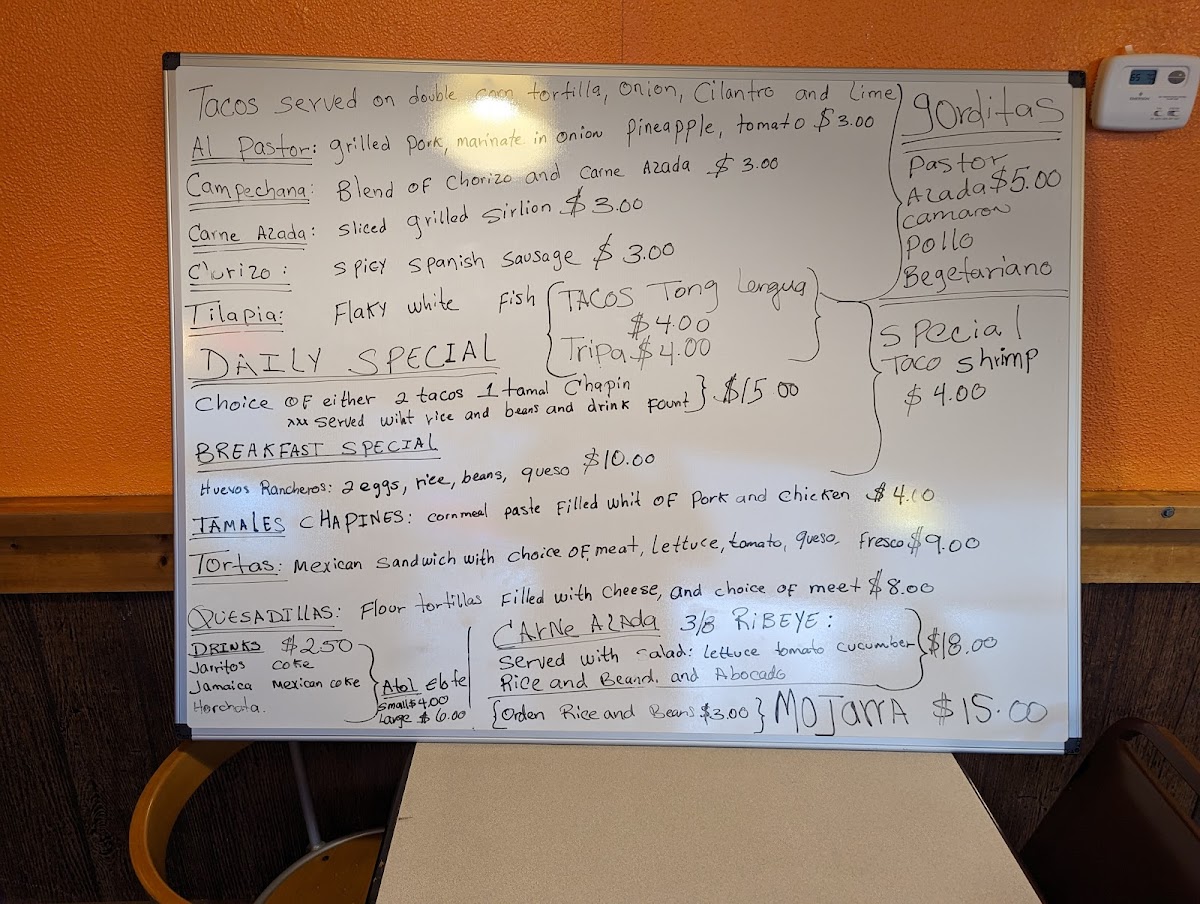 Tacos served on double corn tortilla, onion, Cilantro and Lime
Al Pastor: grilled pork, marinate in onion pineapple, tomato $3.00
Campechana: Blend of Chorizo and Carne Azada $3.00
Carne Azada: sliced grilled Sirlion $3.00
Chorizo: spicy spanish sausage $3.00
Tilapia: Flaky white Fish
TACOS Tong Lengua
$4.00
Tripa $4.00
gorditas
Pastor
Azada $5.00
camaron
Pollo
Begetariano
special
Taco shrimp
$4.00
DAILY SPECIAL
Choice of either 2 tacos 1 tamal Chapin
xxx served wiht rice and beans and drink fount $15 00
BREAKFAST SPECIAL
Huevos Rancheros: 2 eggs, rice, beans, queso $10.00
TAMALES CHAPINES: cornmeal paste filled whit of pork and chicken $4.00
Tortas: Mexican sandwich with choice of meat, lettuce, tomato, queso fresco $9.00
QUESADILLAS: Flour tortillas Filled with cheese, and choice of meet $8.00
DRINKS $2.50
Jarritos coke
Jamaica Mexican coke
Horchata.
Atol Elote
Small $4.00
Large $6.00
CArne AZADA 3/8 RiBEYE:
served with salad: lettuce tomato cucumber $18.00
Rice and Beand, and Abocado
Orden Rice and Beans $3.00
MOJarrA $15.00